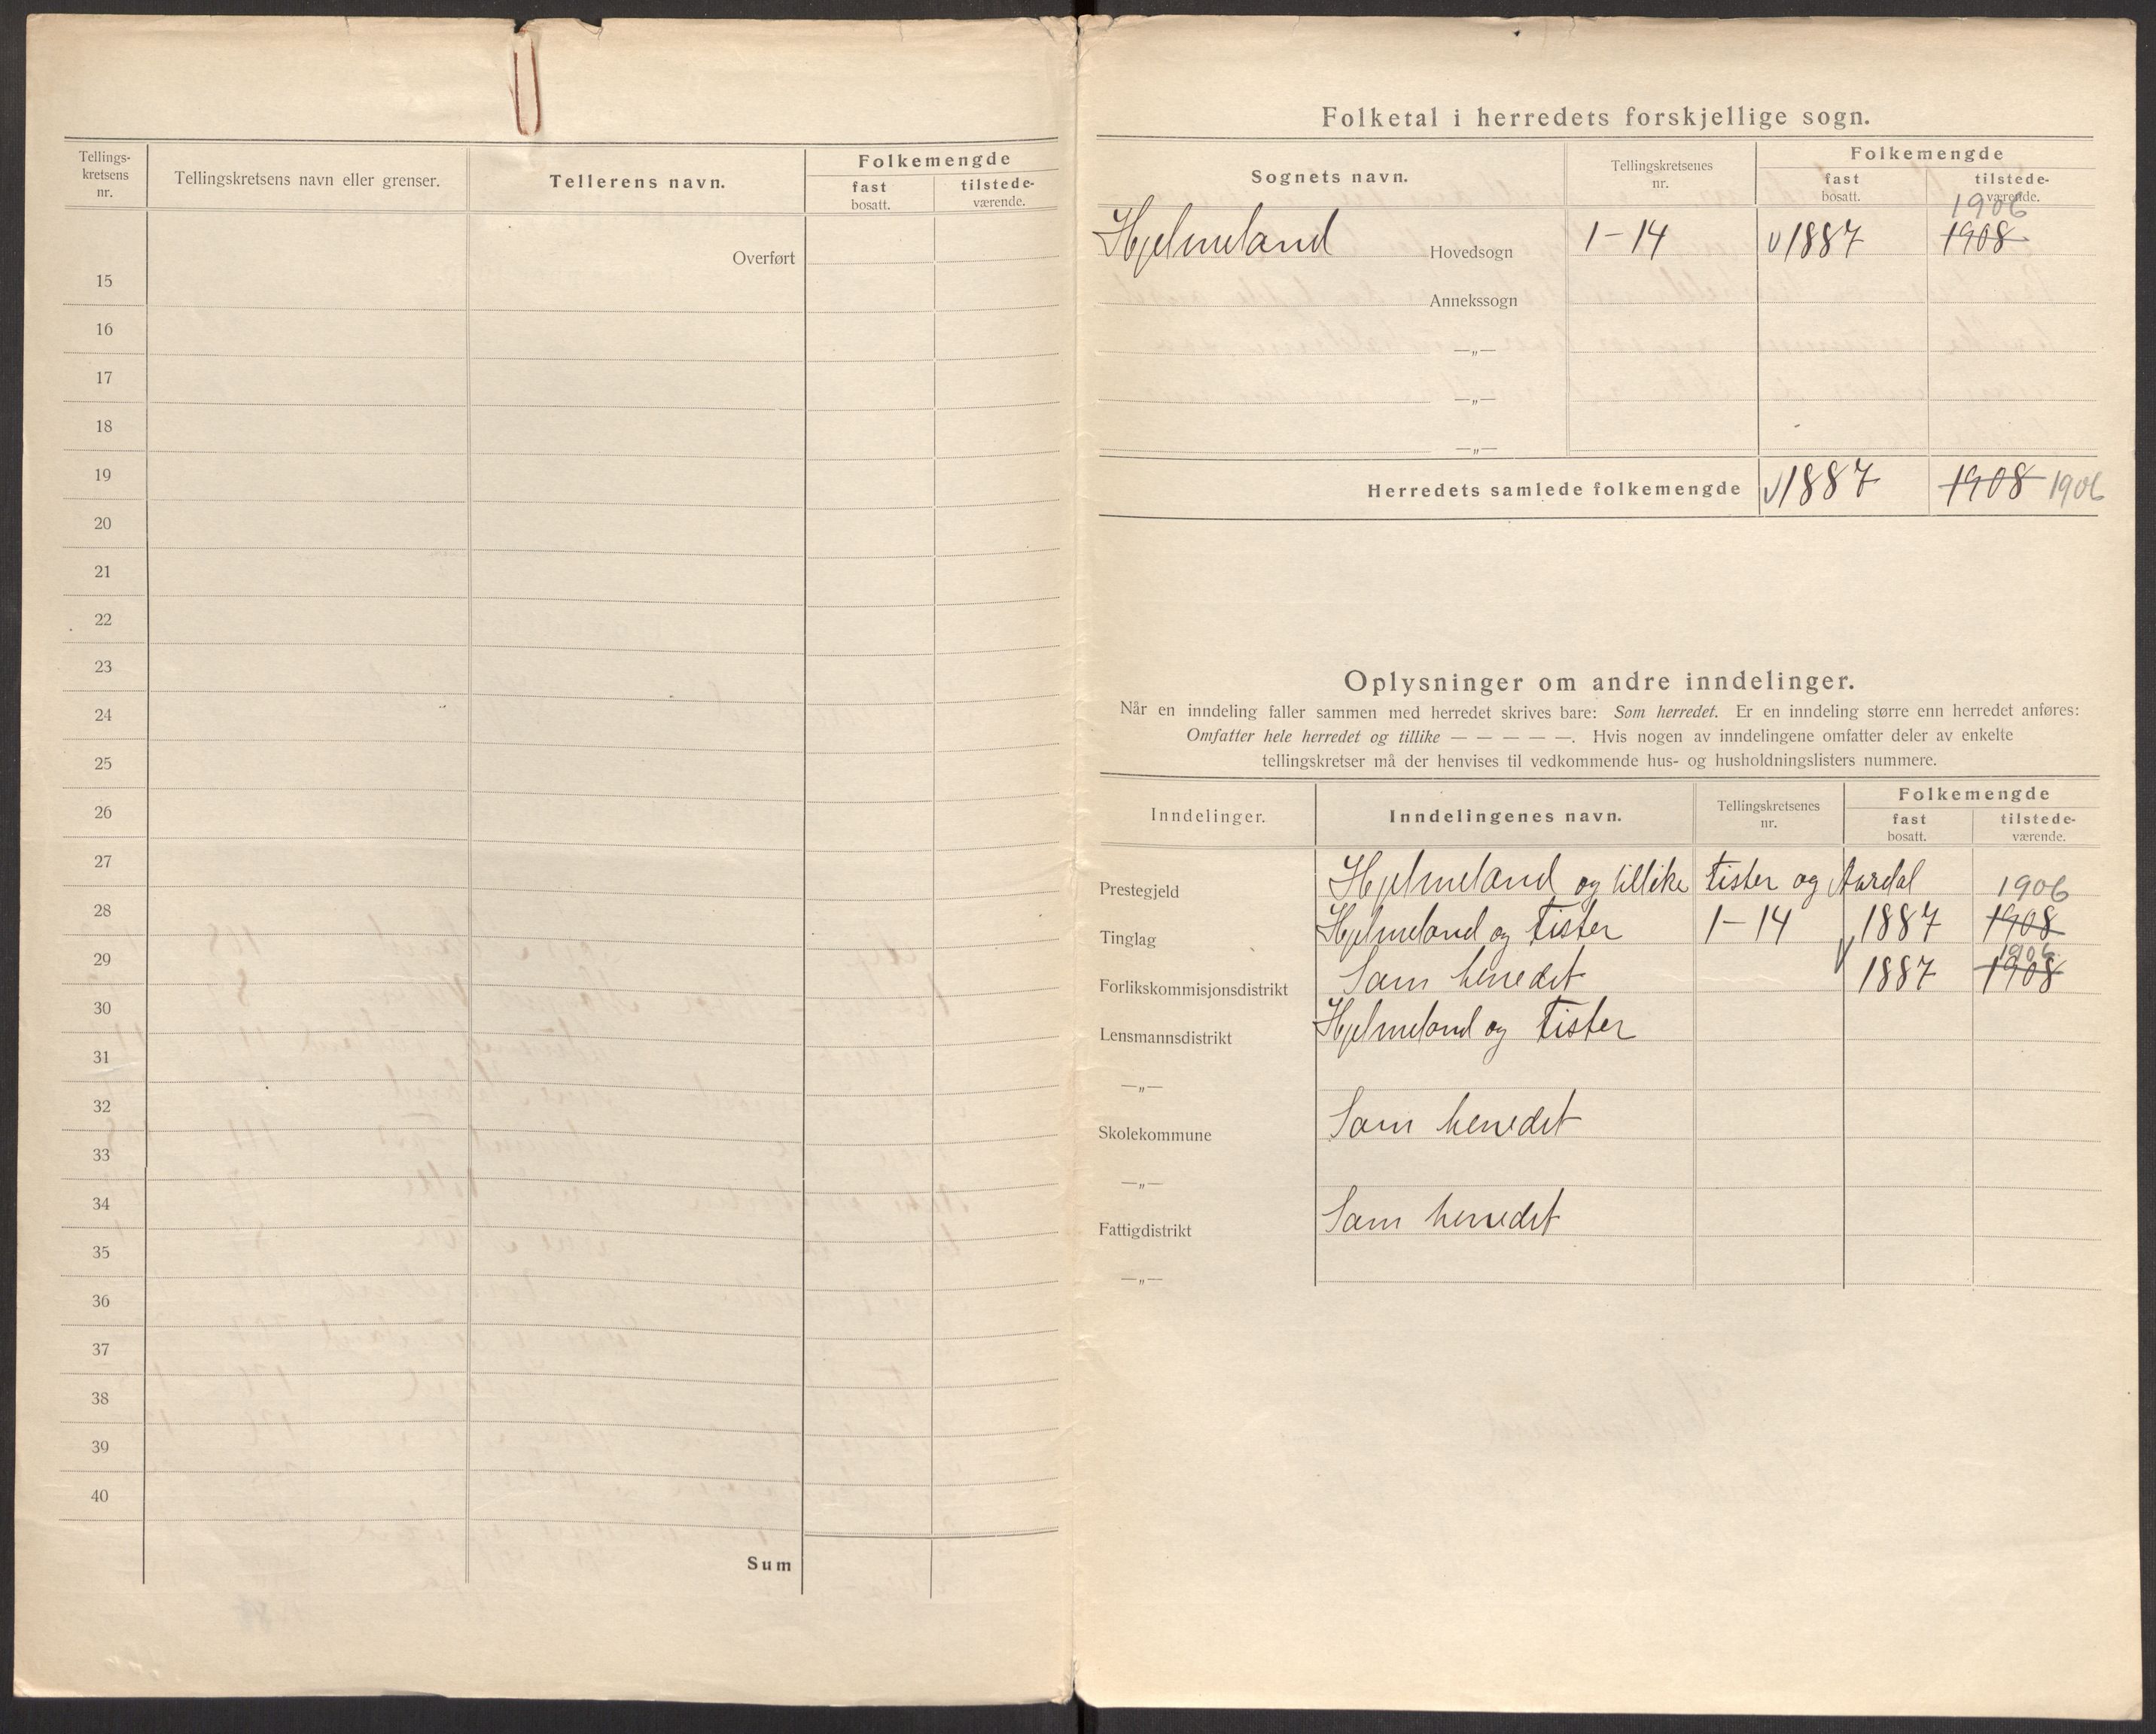 Tellings-
kretsens
nr.
Tellingskretsens navn eller grenser.
Tellerens navn.
Folkemengde
fast
bosatt.
tilstede-
værende.
Overført
15
16
17
18
19
20
21
22
23
24
25
26
27
28
29
30
31
32
33
34
35
36
37
38
39
40
Sum
Folketal i herredets forskjellige sogn.
Sognets navn.
Tellingskretsenes
nr.
Folkemengde
fast
bosatt.
tilstede-
værende.
1906
Hjelmeland Hovedsogn 1-14 1887 1908
Annekssogn
—„—
—„—
—„—
Herredets samlede folkemengde 1887 1908 1906
Oplysninger om andre inndelinger.
Når en inndeling faller sammen med herredet skrives bare: Som herredet. Er en inndeling større enn herredet anføres:
Omfatter hele herredet og tillike — — — — —. Hvis nogen av inndelingene omfatter deler av enkelte
tellingskretser må der henvises til vedkommende hus- og husholdningslisters nummere.
Inndelinger.
Inndelingenes navn.
Tellingskretsenes
nr.
Folkemengde
fast
bosatt.
tilstede-
værende.
Prestegjeld Hjelmeland og tillike Fister og Aardal 1906
Tinglag Hjelmeland og Fister 1-14 1887 1908
1906
Forlikskommisjonsdistrikt Som herredet 1887 1908
Lensmannsdistrikt Hjelmeland og Fister
—„—
Skolekommune Som herredet
—„—
Fattigdistrikt Som herredet
—„—